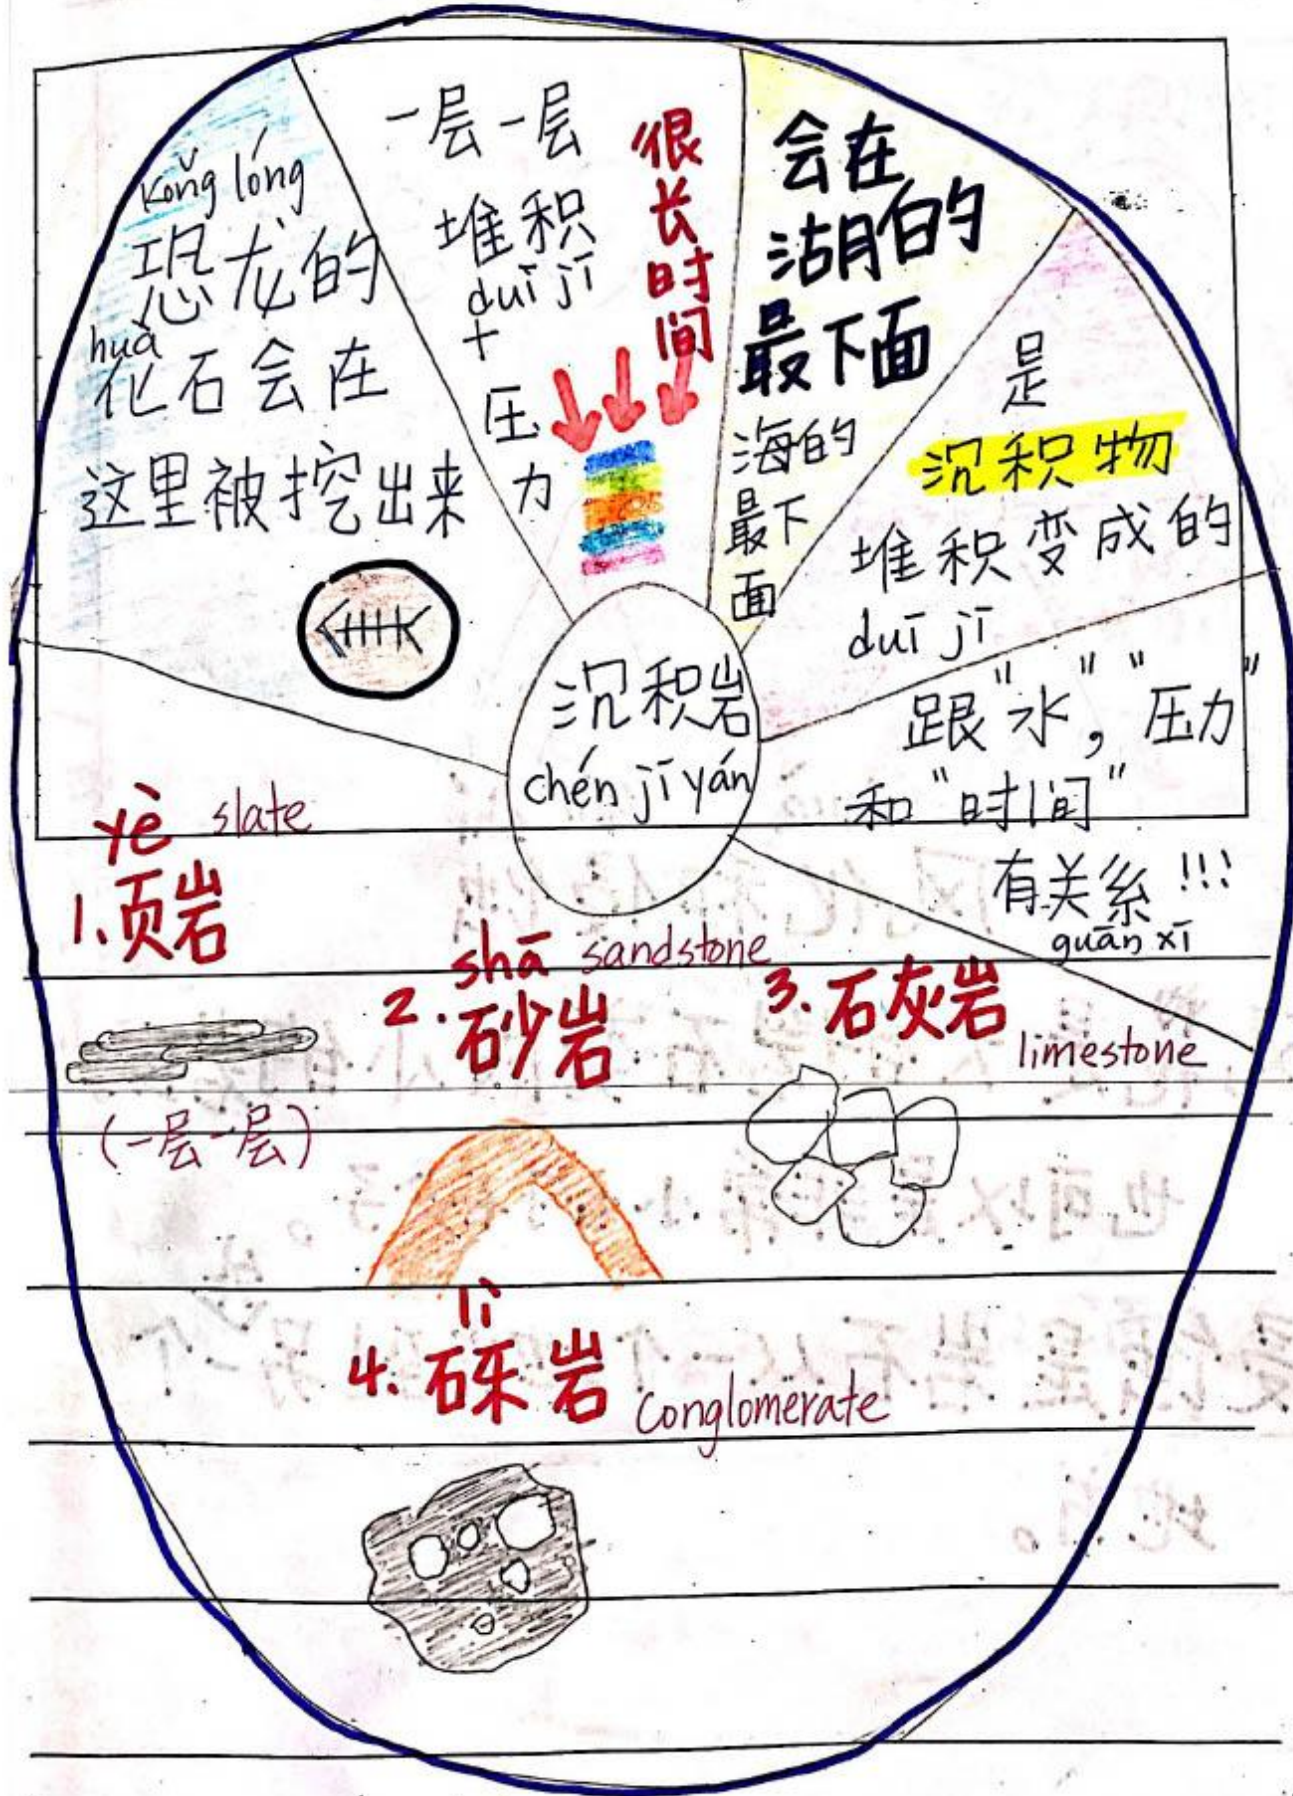 kǒng lóng
恐龙的
huà
化石会在
这里被挖出来
一层一层
堆积
duī jī
+
压力
很长时间
会在
湖的
最下面
海的
最下
面
是
沉积物
堆积变成的
duī jī
跟"水","压力"
和"时间"
有关系!!!
guān xī
沉积岩
chén jī yán
yè slate
1.页岩
(一层一层)
shā sandstone
2.砂岩
3.石灰岩
limestone
lì
4.砾岩 Conglomerate